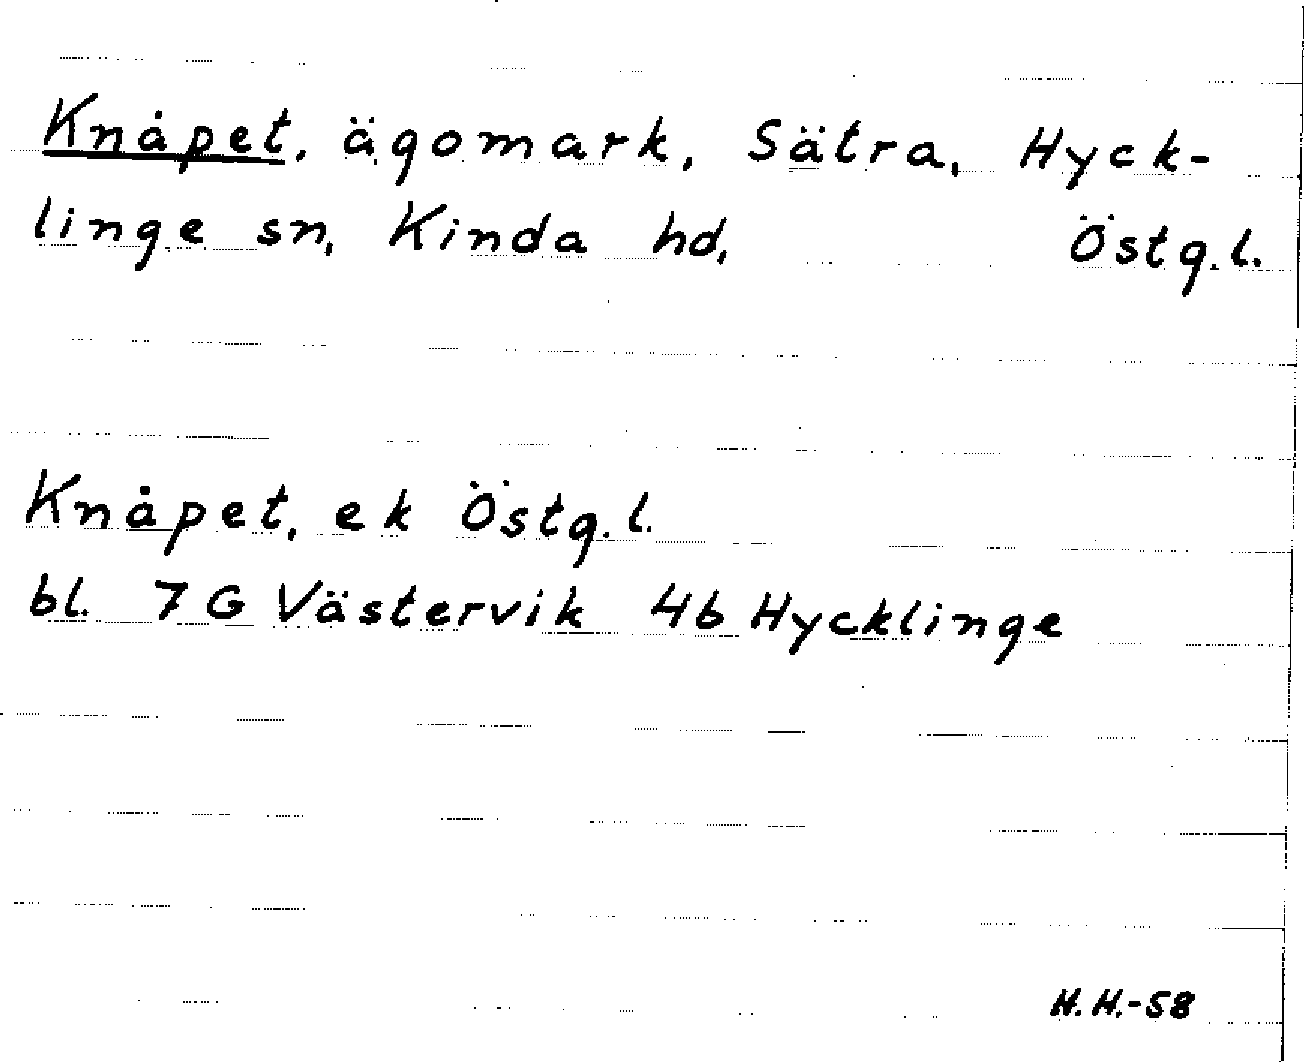 Knåpet, ägomark, Sätra, Hyck-
linge sn, Kinda hd, Östg.l.
Knåpet, ek Östg.l.
bl. 7 G Västervik 4b Hycklinge
H.H.-58